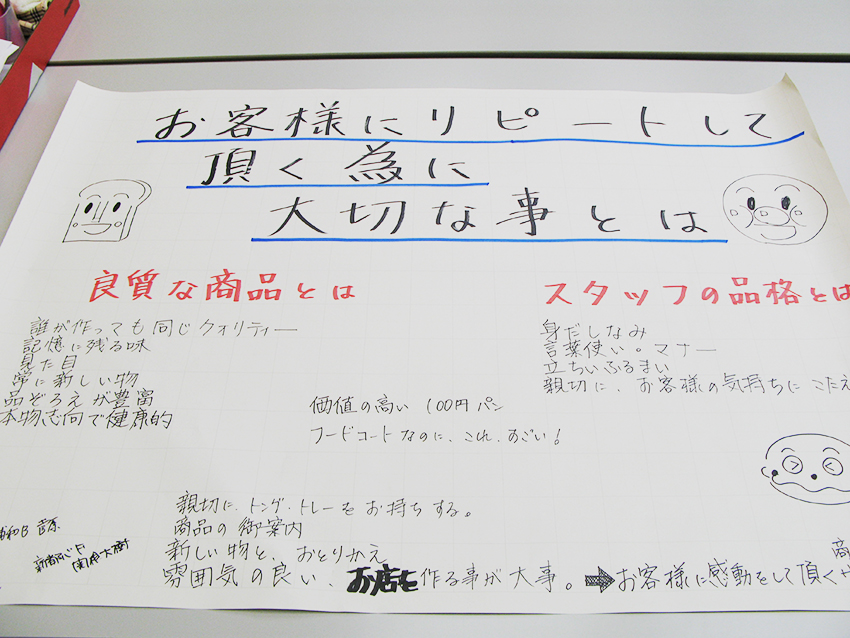 お客様にリピートして
頂く為に
大切な事とは
良質な商品とは
誰が作っても同じクォリティー
記憶に残る味
見た目
常に新しい物
品ぞろえが豊富
本物志向で健康的
スタッフの品格とは
身だしなみ
言葉使い。マナー
立ちいふるまい
親切に、お客様の気持ちにこたえ
価値の高い 100円パン
フードコートなのに、これ、すごい!
親切に、トング・トレーをお持ちする。
商品の御案内
新しい物と、おとりかえ
雰囲気の良い、お店を作る事が大事。➡お客様に感動をして頂く
商